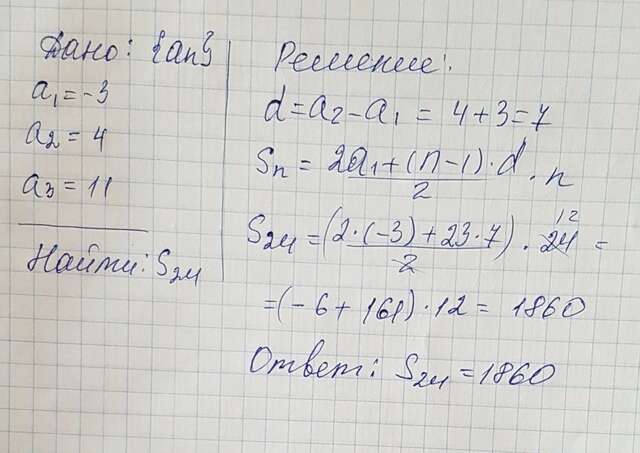 Дано: {an}
a₁ = -3
a₂ = 4
a₃ = 11
Найти: S₂₄
Решение:
d = a₂ - a₁ = 4 + 3 = 7
Sₙ = (2a₁ + (n-1)·d)/2 · n
S₂₄ = (2·(-3) + 23·7)/2 · 24 =
12
= (-6 + 161)·12 = 1860
Ответ: S₂₄ = 1860